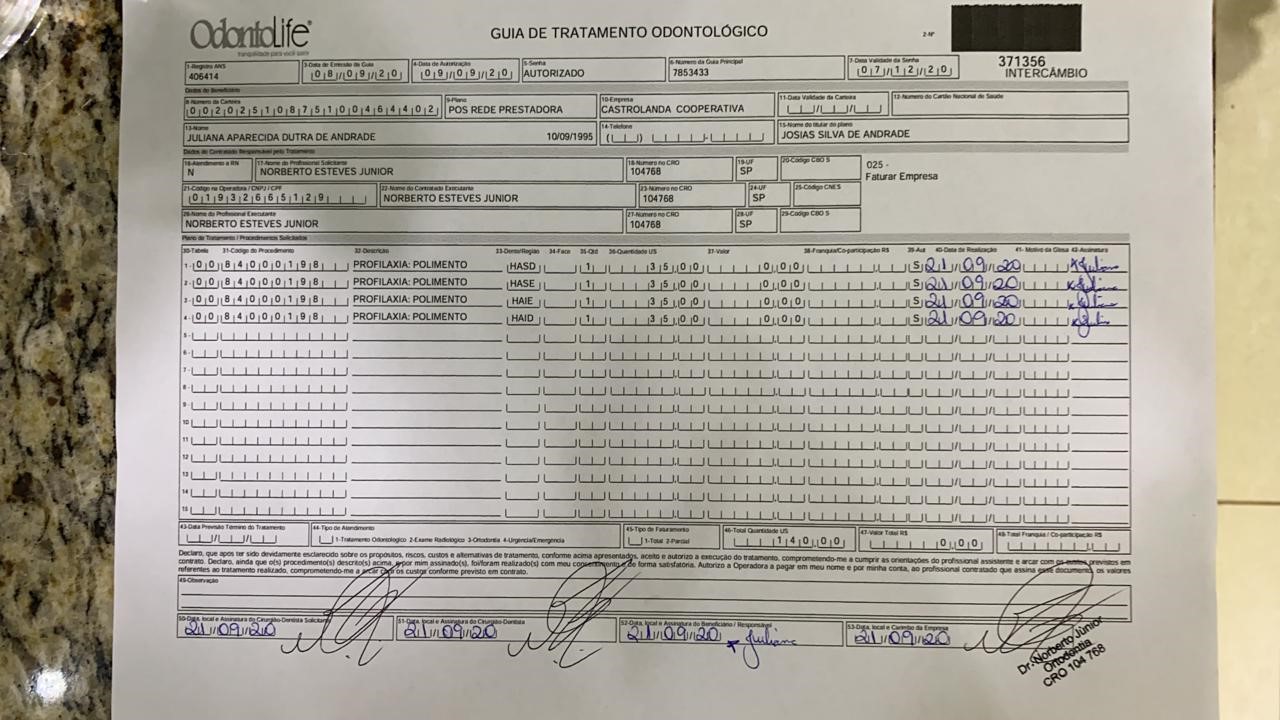 OdontoLife®
tranquilidade para você sorrir
GUIA DE TRATAMENTO ODONTOLÓGICO
2-Nº
371356
INTERCÂMBIO
1-Registro ANS
406414
3-Data de Emissão da Guia
08/09/20
4-Data de Autorização
09/09/20
5-Senha
AUTORIZADO
6-Número da Guia Principal
7853433
7-Data Validade da Senha
07/12/20
Dados do Beneficiário
8-Número da Carteira
00202510875100464402
9-Plano
POS REDE PRESTADORA
10-Empresa
CASTROLANDA COOPERATIVA
11-Data Validade da Carteira
12-Número do Cartão Nacional de Saúde
13-Nome
JULIANA APARECIDA DUTRA DE ANDRADE 10/09/1995
14-Telefone
15-Nome do titular do plano
JOSIAS SILVA DE ANDRADE
Dados do Contratado Responsável pelo Tratamento
16-Atendimento a RN
N
17-Nome do Profissional Solicitante
NORBERTO ESTEVES JUNIOR
18-Número no CRO
104768
19-UF
SP
20-Código CBO S
025 -
Faturar Empresa
21-Código na Operadora / CNPJ / CPF
01932665129
22-Nome do Contratado Executante
NORBERTO ESTEVES JUNIOR
23-Número no CRO
104768
24-UF
SP
25-Código CNES
26-Nome do Profissional Executante
NORBERTO ESTEVES JUNIOR
27-Número no CRO
104768
28-UF
SP
29-Código CBO S
Plano de Tratamento / Procedimentos Solicitados
30-Tabela 31-Código do Procedimento 32-Descrição 33-Dente/Região 34-Face 35-Qtd 36-Quantidade US 37-Valor 38-Franquia/Co-participação R$ 39-Aut 40-Data de Realização 41- Motivo da Glosa 42-Assinatura
1- 00 84000198 PROFILAXIA: POLIMENTO HASD 1 35,00 0,00 S 21/09/20 x Juliana
2- 00 84000198 PROFILAXIA: POLIMENTO HASE 1 35,00 0,00 S 21/09/20 x Juliana
3- 00 84000198 PROFILAXIA: POLIMENTO HAIE 1 35,00 0,00 S 21/09/20
4- 00 84000198 PROFILAXIA: POLIMENTO HAID 1 35,00 0,00 S 21/09/20
5-
6-
7-
8-
9-
10
11
12
13
14
15
43-Data Previsão Término do Tratamento
44-Tipo de Atendimento
1-Tratamento Odontológico 2-Exame Radiológico 3-Ortodontia 4-Urgência/Emergência
45-Tipo de Faturamento
1-Total 2-Parcial
46-Total Quantidade US
140,00
47-Valor Total R$
0,00
48-Total Franquia / Co-participação R$
Declaro, que apos ter sido devidamente esclarecido sobre os propósitos, riscos, custos e alternativas de tratamento, conforme acima apresentados, aceito e autorizo a execução do tratamento, comprometendo-me a cumprir as orientações do profissional assistente e arcar com os custos previstos em
contrato. Declaro, ainda que o(s) procedimento(s) descrito(s) acima, e por mim assinado(s), foi/foram realizado(s) com meu consentimento e de forma satisfatória. Autorizo a Operadora a pagar em meu nome e por minha conta, ao profissional contratado que assina esse documento, os valores
referentes ao tratamento realizado, comprometendo-me a arcar com os custos conforme previsto em contrato.
49-Observação
50-Data, local e Assinatura do Cirurgião-Dentista Solicitante
21/09/20
51-Data, local e Assinatura do Cirurgião-Dentista
21/09/20
52-Data, local e Assinatura do Beneficiário / Responsável
21/09/20 x Juliana
53-Data, local e Carimbo da Empresa
21/09/20
Dr. Norberto Júnior
Ortodontia
CRO 104 768